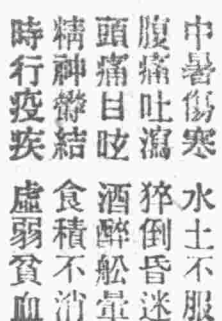 中暑傷寒 水土不服
腹痛吐瀉 猝倒昏迷
頭痛目眩 酒醉舩暈
精神欝結 食積不消
時行疫疾 虛弱貧血